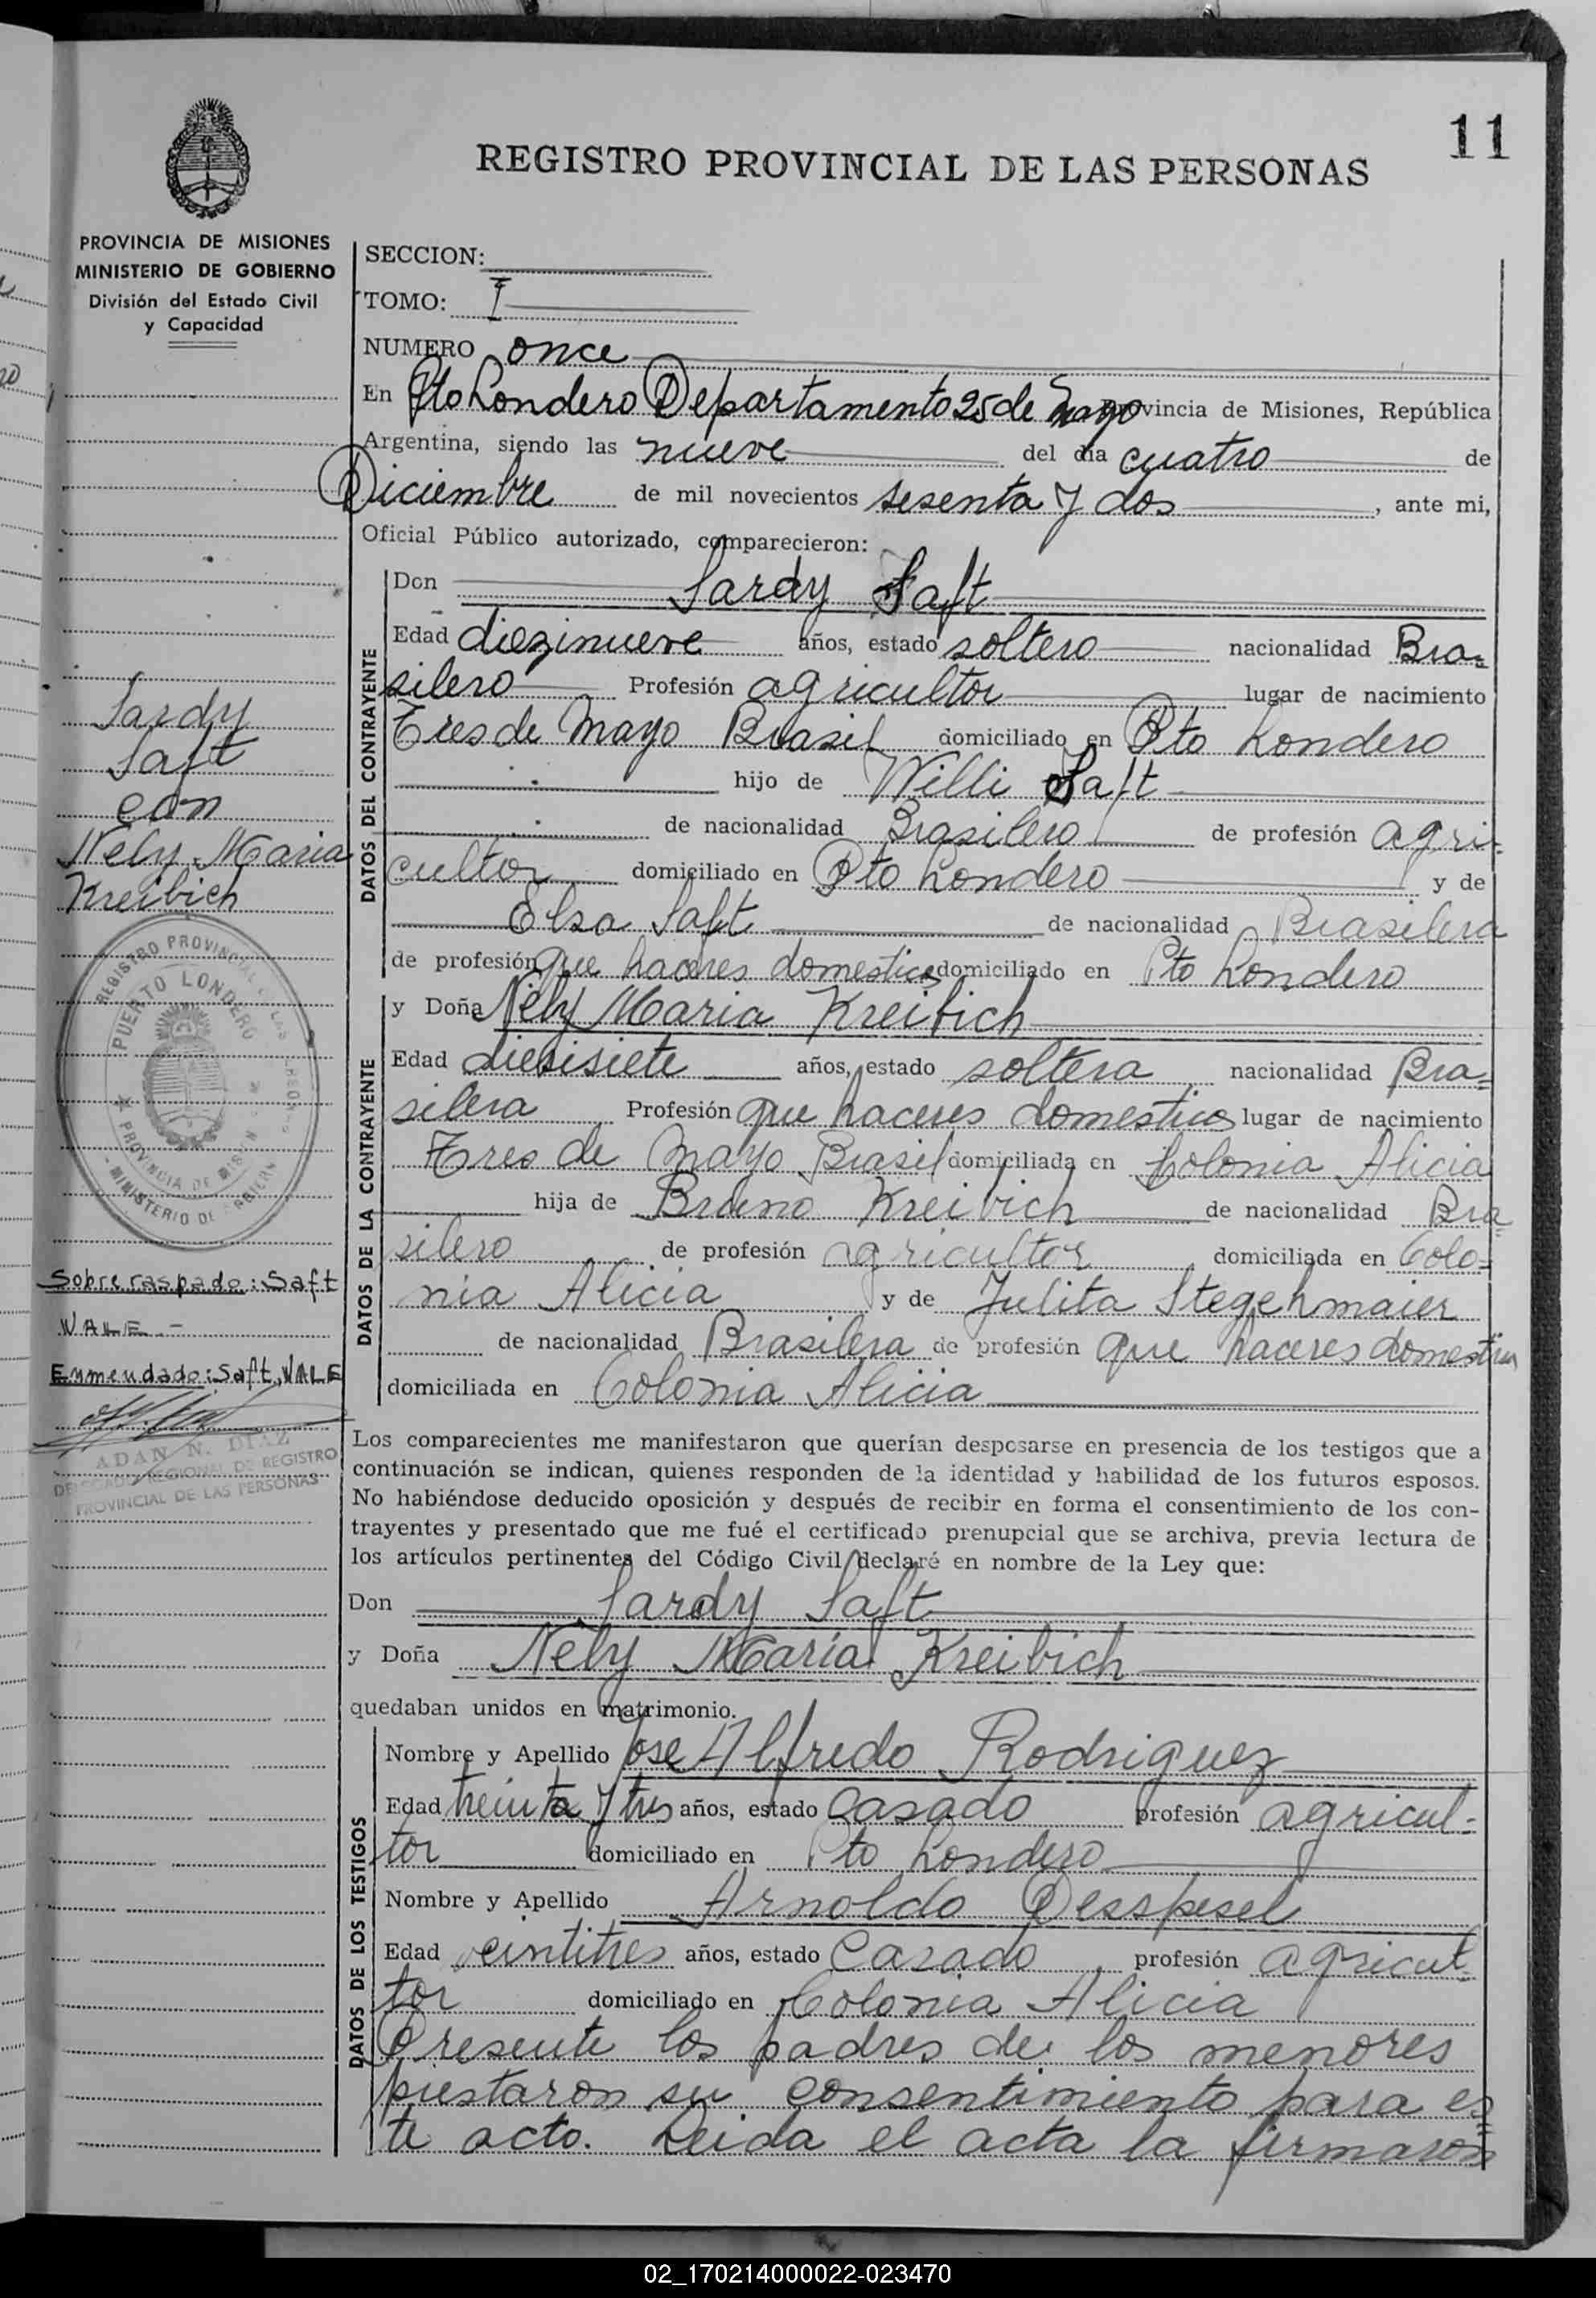 11
REGISTRO PROVINCIAL DE LAS PERSONAS
PROVINCIA DE MISIONES
MINISTERIO DE GOBIERNO
División del Estado Civil
y Capacidad
SECCION:
TOMO: I
NUMERO once
En Pto Londero Departamento 25 de Mayo Provincia de Misiones, República
Argentina, siendo las nueve del día cuatro de
Diciembre de mil novecientos sesenta y dos, ante mi,
Oficial Público autorizado, comparecieron:
DATOS DEL CONTRAYENTE
Don Sardy Saft
Edad diezinueve años, estado soltero nacionalidad Bra=
silero Profesión agricultor lugar de nacimiento
Tres de Mayo Brasil domiciliado en Pto Londero
hijo de Willi Saft
de nacionalidad Brasilero de profesión agri-
cultor domiciliado en Pto Londero y de
Elsa Saft de nacionalidad Brasilera
de profesión que haceres domesticos domiciliado en Pto Londero
DATOS DE LA CONTRAYENTE
y Doña Nely Maria Kreibich
Edad diesisiete años, estado soltera nacionalidad Bra=
silera Profesión que haceres domesticos lugar de nacimiento
Tres de Mayo Brasil domiciliada en Colonia Alicia
hija de Bruno Kreibich de nacionalidad Bra
silero de profesión agricultor domiciliada en Colo=
nia Alicia y de Julita Stegehmaier
de nacionalidad Brasilera de profesión que haceres domesticos
domiciliada en Colonia Alicia
Los comparecientes me manifestaron que querían desposarse en presencia de los testigos que a
continuación se indican, quienes responden de la identidad y habilidad de los futuros esposos.
No habiéndose deducido oposición y después de recibir en forma el consentimiento de los con-
trayentes y presentado que me fué el certificado prenupcial que se archiva, previa lectura de
los artículos pertinentes del Código Civil declaré en nombre de la Ley que:
Don Sardy Saft
y Doña Nely Maria Kreibich
quedaban unidos en matrimonio.
DATOS DE LOS TESTIGOS
Nombre y Apellido Jose Alfredo Rodriguez
Edad treinta y tres años, estado casado profesión agricul-
tor domiciliado en Pto Londero
Nombre y Apellido Arnoldo Desspesel
Edad veintitres años, estado Casado profesión agricul-
tor domiciliado en Colonia Alicia
Presente los padres de los menores
prestaron su consentimiento para es
te acto. Leida el acta la firmaron
Sardy
Saft
con
Nely Maria
Kreibich
REGISTRO PROVINCIAL DE LAS PERSONAS
PUERTO LONDERO
PROVINCIA DE MISIONES
MINISTERIO DE GOBIERNO
Sobre raspado: Saft
VALE.-
Enmendado: Saft, VALE
ADAN N. DIAZ
DELEGADO REGIONAL DE REGISTRO
PROVINCIAL DE LAS PERSONAS
02_170214000022-023470